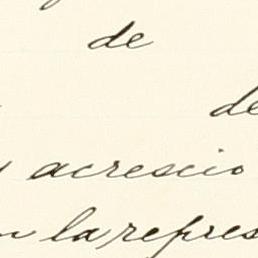 de
de
acrescio
la repres